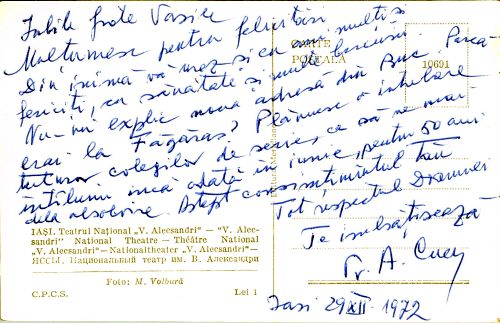 Iubite frate Vasile
Mulțumesc pentru felicitări
Din inimă vă urez și eu mulți și
fericiți, cu sănătate și multe bucurii.
Nu-mi explic noua adresă din Buc. Parcă
erai la Făgăraș? Plănuesc o întrebare
tuturor colegilor de serie, ca să ne mai
întîlnim încă odată în iunie, pentru 50 ani
dela absolvire. Aștept consimțimîntul tău
Tot respectul Doamnei
Te îmbrățișează
Pr. A.
Iasi 29 XII 1972
CARTE
POȘTALĂ
10691
IAȘI. Teatrul Național „V. Alecsandri" – "V. Alec-
sandri" National Theatre – Théâtre National
„V. Alecsandri" – Nationaltheater „V. Alecsandri" –
ЯССЫ. Национальный театр им. В. Александри
Foto: M. Volbură
C.P.C.S. Lei 1